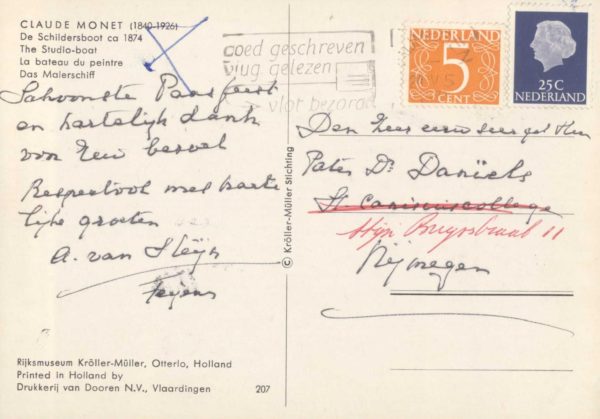 CLAUDE MONET (1840-1926)
De Schildersboot ca 1874
The Studio-boat
La bateau du peintre
Das Malerschiff
goed geschreven
vlug gelezen
vlot bezorgd
NEDERLAND
5
CENT
25 C
NEDERLAND
Schoonste Paasfeest
en hartelijk dank
voor Uw
Respectvol met harte
lijke groeten
A. van
© Kröller-Müller Stichting
Den Heer
Pater Dr. Daniëls
St Canisiuscollege
11
Nijmegen
Rijksmuseum Kröller-Müller, Otterlo, Holland
Printed in Holland by
Drukkerij van Dooren N.V., Vlaardingen
207